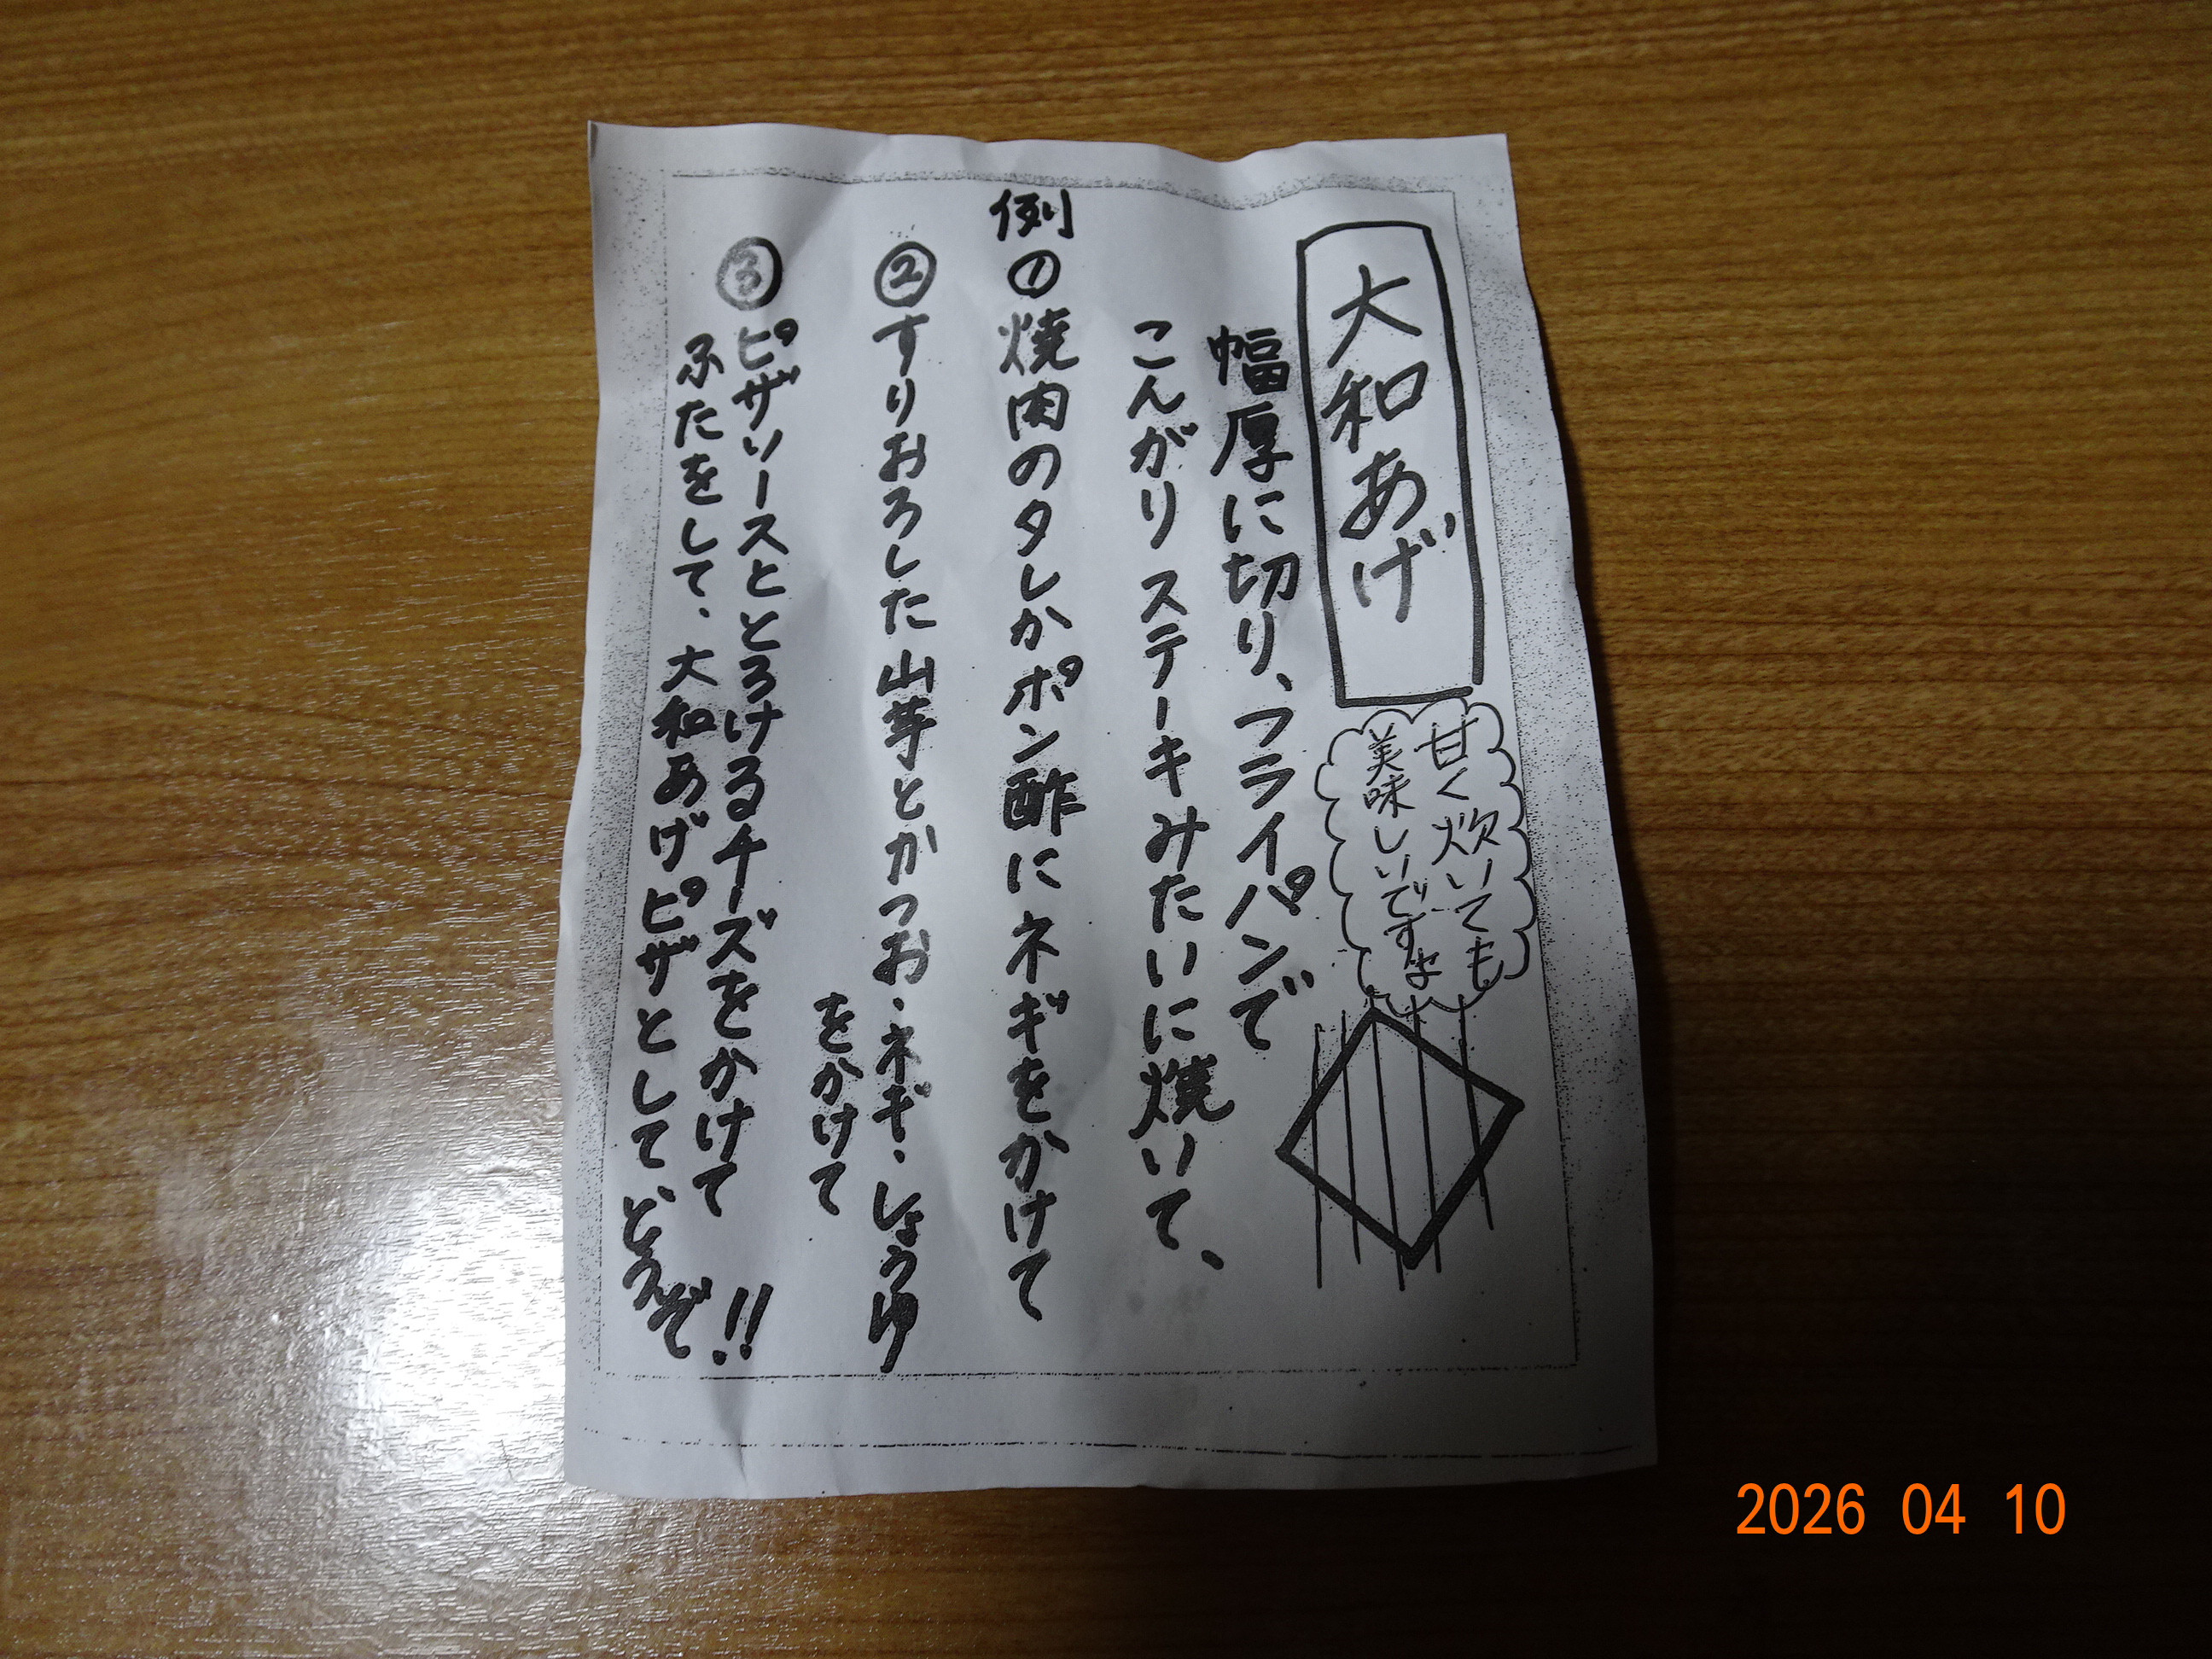 大和あげ
甘く炊いても
美味しいですよ
幅厚に切り、フライパンで
こんがりステーキみたいに焼いて、
例①焼肉のタレかポン酢にネギをかけて
②すりおろした山芋とかつお・ネギ・しょうゆ
をかけて
③ピザソースととろけるチーズをかけて
ふたをして、大和あげピザとして、どうぞ!!
2026 04 10